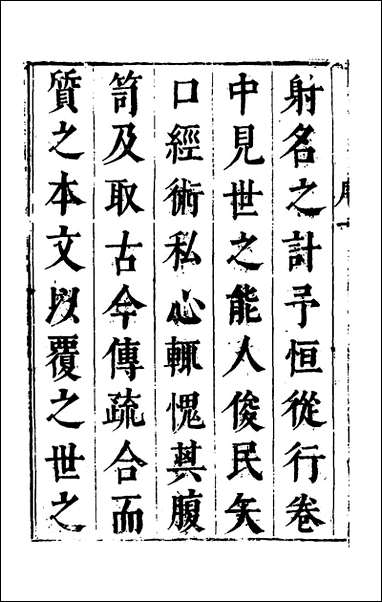 射名之計予恒從行卷
中見世之能人俊民矢
口經術私心輒愧其腹
笥及取古今傳疏合而
質之本文以覆之世之